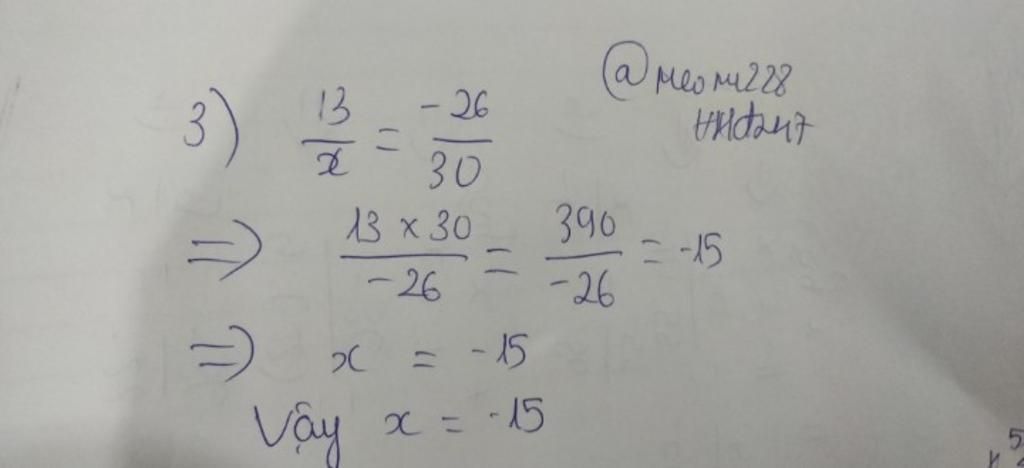 3) 13/x = -26/30
@meomu228
⇒ 13 x 30/-26 = 390/-26 = -15
⇒ x = -15
Vậy x = -15